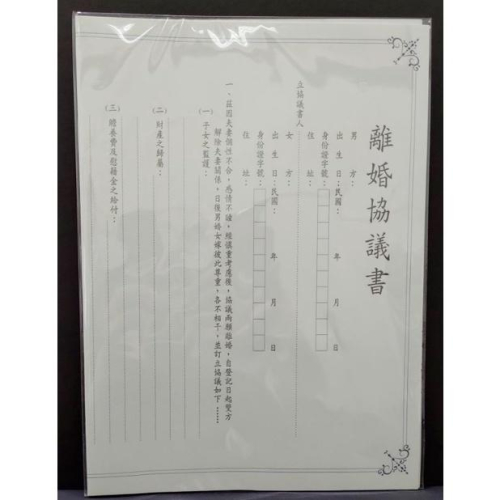 離婚協議書
男方：
出生日：民國：年月日
身份證字號：
住址：
立協議書人
女方：
出生日：民國：年月日
身份證字號：
住址：
一．茲因夫妻個性不合，感情不睦，經慎重考慮後，協議兩願離婚，自登記日起雙方
解除夫妻關係，日後男婚女嫁彼此尊重，各不相干，並訂立協議如下……
（一）子女之監護：
（二）財產之歸屬：
（三）贍養費及慰藉金之給付：